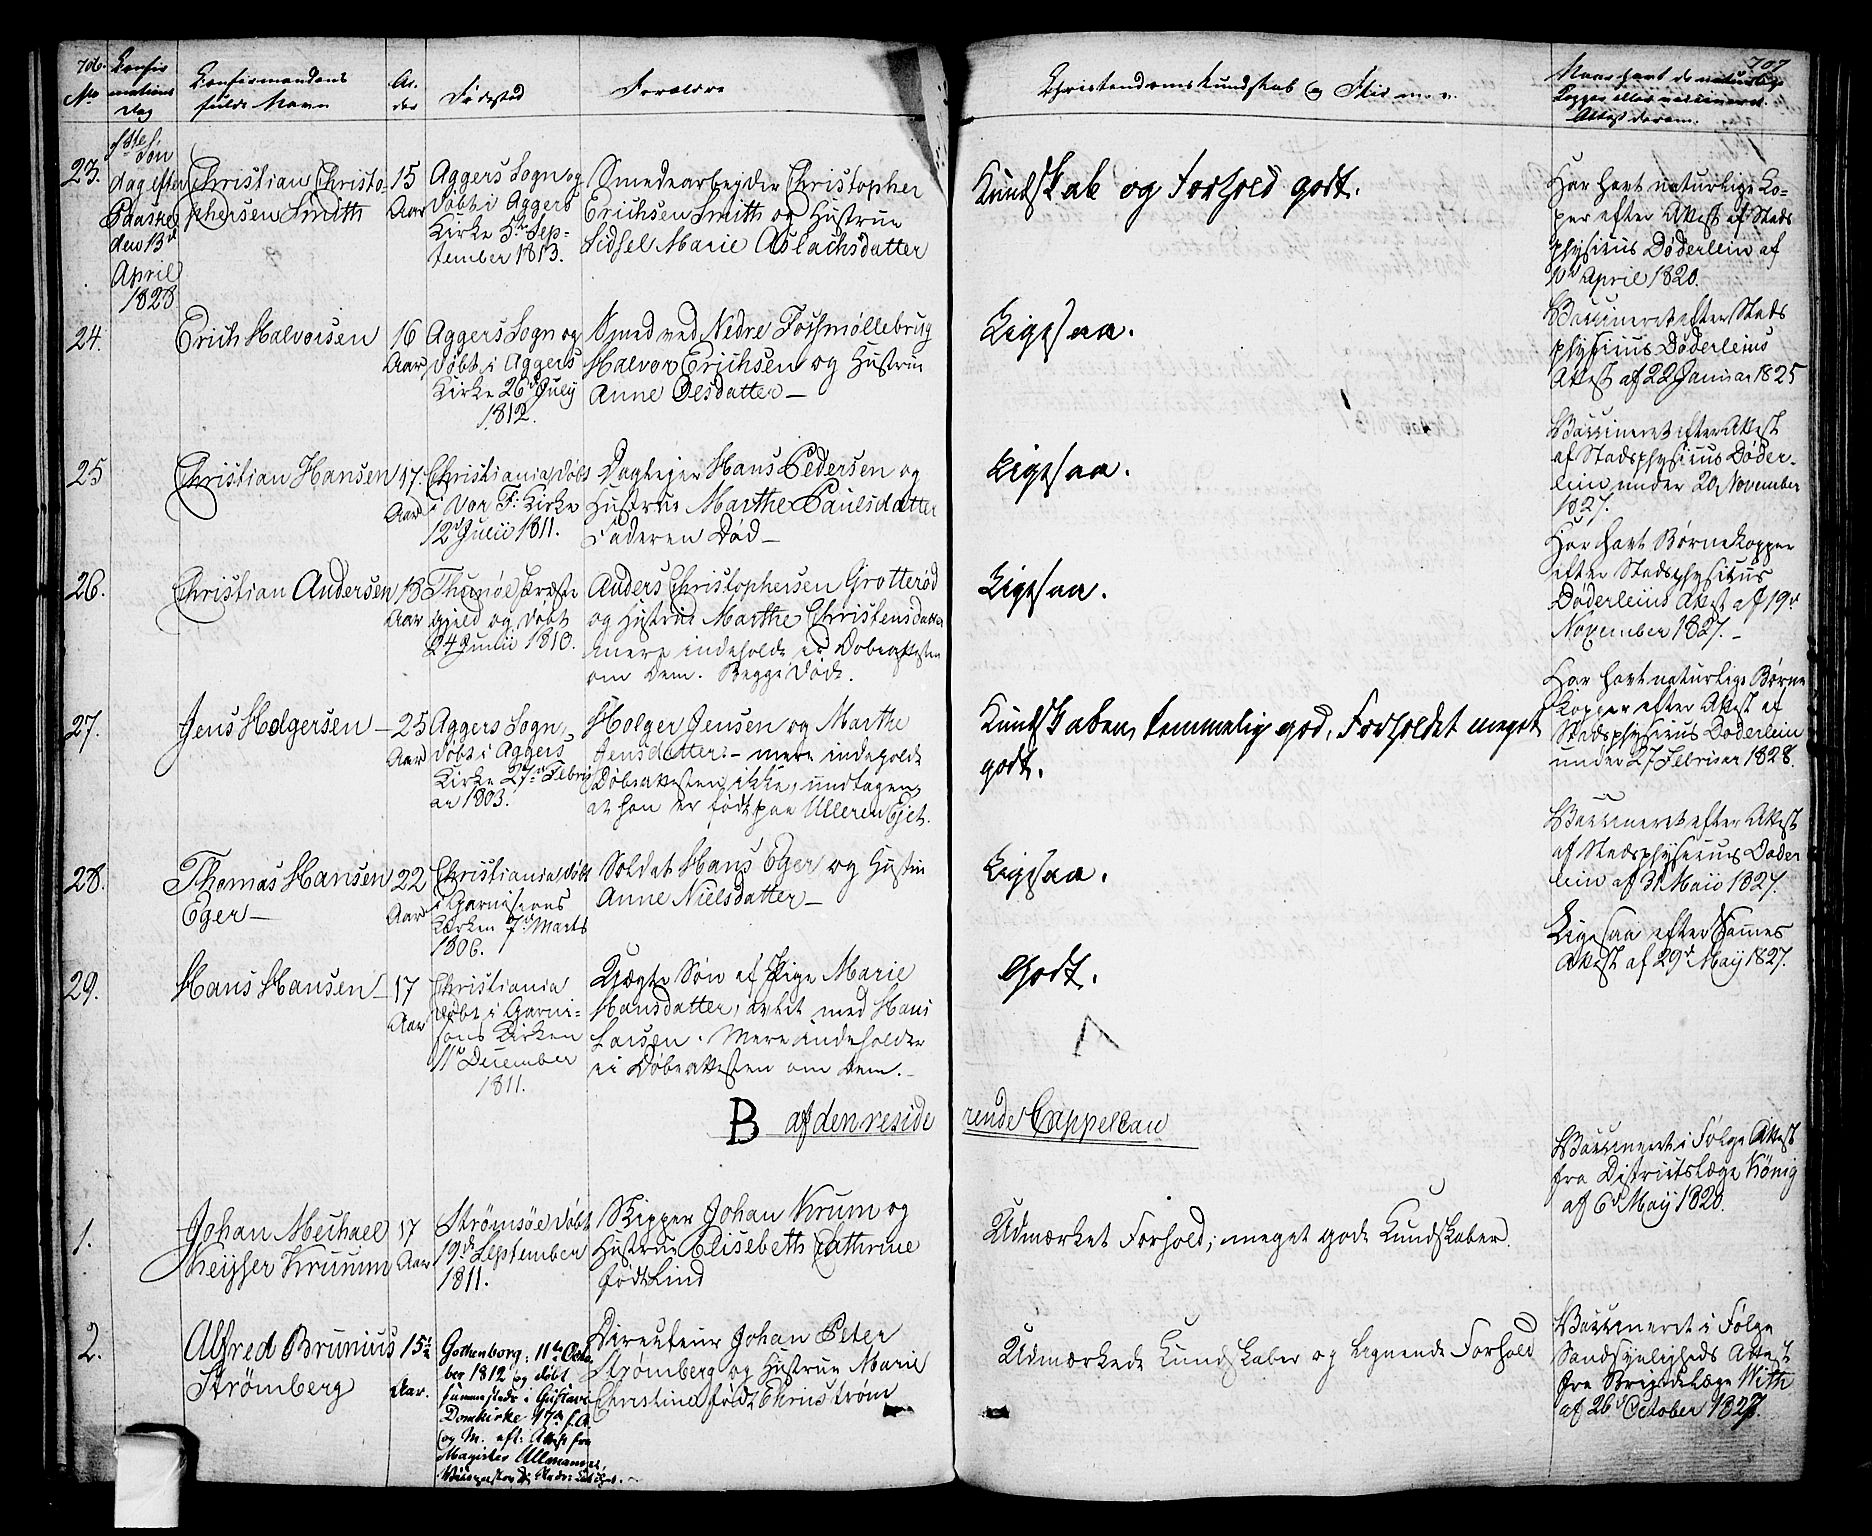 706.
No
Confir
mations
Dag
Confirmandens
fulde Navn
Al-
der
Fødested
Forældre
Christendoms Kundskab og Flid m. v.
707
Naar havt de naturlige
Kopper eller vaccineret.
Attest derom.
23.
1ste Søn
dag efter
Paaske
den 13de
April
1828
Christian Christo-
phersen Smith
15
Aar
Aggers Sogn og
døbt i Aggers
Kirke 5te Sep-
tember 1813.
Smedearbejder Christopher
Erichsen Smith og Hustrue
Sidsel Marie Aslachsdatter
Kundskab og Forhold godt.
Har havt naturlige Ko-
per efter Attest af Stads
physicus Døderlein af
10de April 1820.
24.
Erich Halvorsen
16
Aar
Aggers Sogn og
døbt i Aggers
Kirke 26de July
1812.
Smed ved Nedre Fossmøllebrug
Halvor Erichsen og Hustrue
Anne Olesdatter —
Ligesaa.
Vaccineret efter Stads
physicus Døderleins
Attest af 22 Januar 1825
25
Christian Hansen
17
Aar
Christiania døbt
i Vor F: Kirke
12 Julii 1811.
Daglejer Hans Pedersen og
Hustrue Marthe Paulsdatter
Faderen Død —
Ligesaa.
Vaccineret efter Attest
af Stadsphysicus Døder-
lein under 20 November
1827.
26.
Christian Andersen
18
Aar
Thunøe Præste
gjeld og døbt
24 Junii 1810.
Anders Christophersen Grotterød
og Hustrue Marthe Christensdatter
mere indeholder ei Døbeattesten
om Dem. Begge Døde.
Ligesaa.
Har havt Børnekopper
efter Stadsphysicus
Døderleins Attest af 19de
November 1827. —
27.
Jens Holgersen —
25
Aar
Aggers Sogn,
døbt i Aggers
Kirke 27de Febru
ar 1803.
Holger Jensen og Marthe
Jensdatter. — mere indeholdt
Døbeattesten ikke, undtagen,
at han er født paa Ulleren Ejet.
Kundskaben temmelig god, Forholdet meget
godt.
Har havt naturlige Børne
Kopper efter Attest af
Stadsphysicus Døderlein
under 27 Februar 1828.
28.
Thomas Hansen
Eger —
22
Aar
Christiania døbt
i Garnisons
Kirken 7de Marts
1806.
Soldat Hans Eger og Hustru
Anne Nielsdatter —
Ligesaa.
Vaccineret efter Attest
af Stadsphysicus Døder
lein af 31 Maii 1827.
29.
Hans Hansen —
17
Aar
Christiania
døbt i Garni-
sons Kirken
11te December
1811.
Uægte Søn af Pige Marie
Hansdatter, avlet med Hans
Larsen. Mere indeholder
ei Døbeattesten om Dem. —
Godt.
Ligesaa efter Sammes
Attest af 29de May 1827.
B af den reside rende Cappellan
1.
Johan Michael
Keijser Krumm
17
Aar
Strømsøe døbt
19de September
1811.
Skipper Johan Krum og
Hustrue Elisebeth Cathrine
født Lind
Udmærket Forhold; meget gode Kundskaber.
Vaccineret i Følge Attest
fra Districtslæge König
af 6te May 1820.
2.
Alfred Brunius
Strömberg
15½
Aar.
Gothenborg: 11te Octo
ber 1812 og døbt
sammesteds i Gustavi
Domkirke 17de s. A
og M. eft: Attest fra
Magister Allmanns,
Directeur Johan Peter
Strømberg og Hustrue Marie
Christina født Ehrnstrøm
Udmærkede Kundskaber og lignende Forhold
Vaccineret i Følge
Sandsynligheds Attest
fra Brigadelæge With
af 26 October 1827.